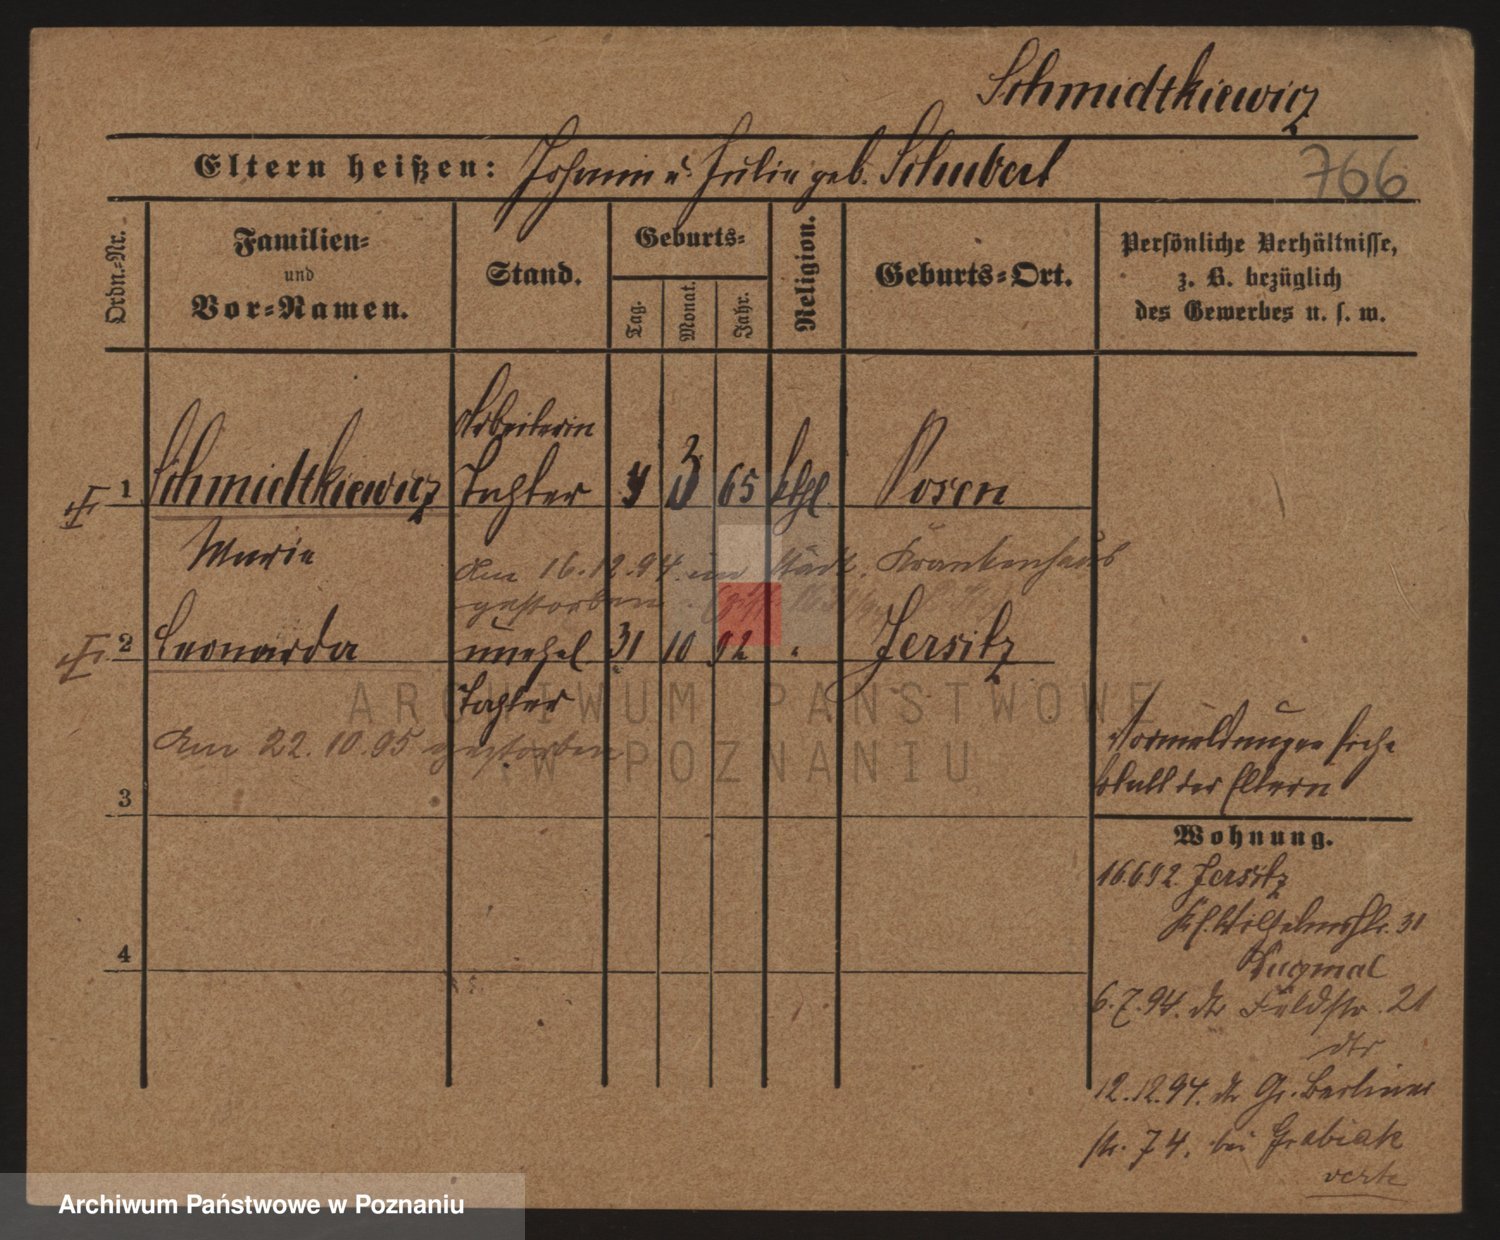 Schmidtkiewicz
Eltern heißen: Johann u. Julia geb. Schubert
766
Ordn.-Nr.
Familien-
und
Vor-Namen.
Stand.
Geburts-
Tag.
Monat.
Jahr.
Religion.
Geburts-Ort.
Persönliche Verhältnisse,
z. B. bezüglich
des Gewerbes u. s. w.
Arbeiterin
1 Schmidtkiewicz Tochter 4 3 65 kthl Posen
Marie
Am 16.12.94 im städt. Krankenhaus
gestorben
2 Leonarda unehel 31 10 92 Jersitz
Tochter
Am 22.10.95 gestorben
ARCHIWUM PAŃSTWOWE
W POZNANIU
Vormeldungen siehe
Blatt der Eltern
3
Wohnung.
16.6.92. Jersitz
Ks. Wilhelmstr. 31
4
6.7.94. dto Feldstr. 21
dto
12.12.94. dto Gr. Berliner
str. 74. bei Grabiak
verte
Archiwum Państwowe w Poznaniu